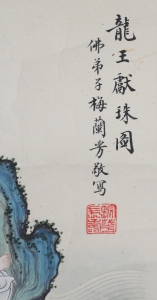 龍王獻珠圖
佛弟子梅蘭芳敬寫